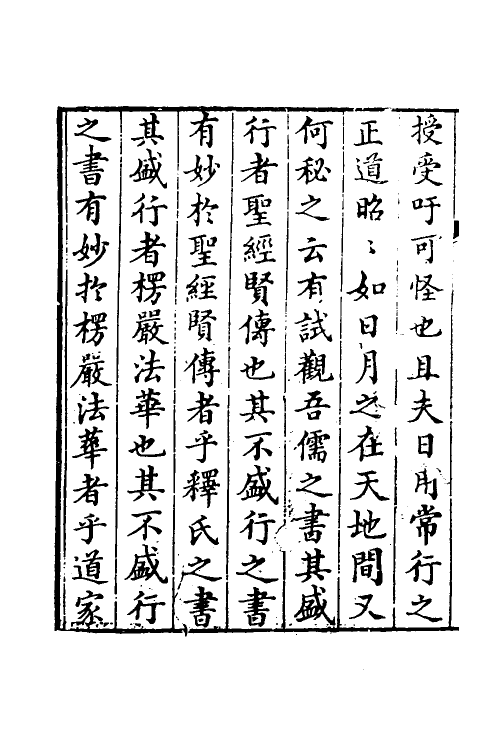 授受吁可怪也且夫日用常行之
正道昭〻如日月之在天地間又
何秘之云有試觀吾儒之書其盛
行者聖經賢傳也其不盛行之書
有妙於聖經賢傳者乎釋氏之書
其盛行者楞嚴法華也其不盛行
之書有妙於楞嚴法華者乎道家